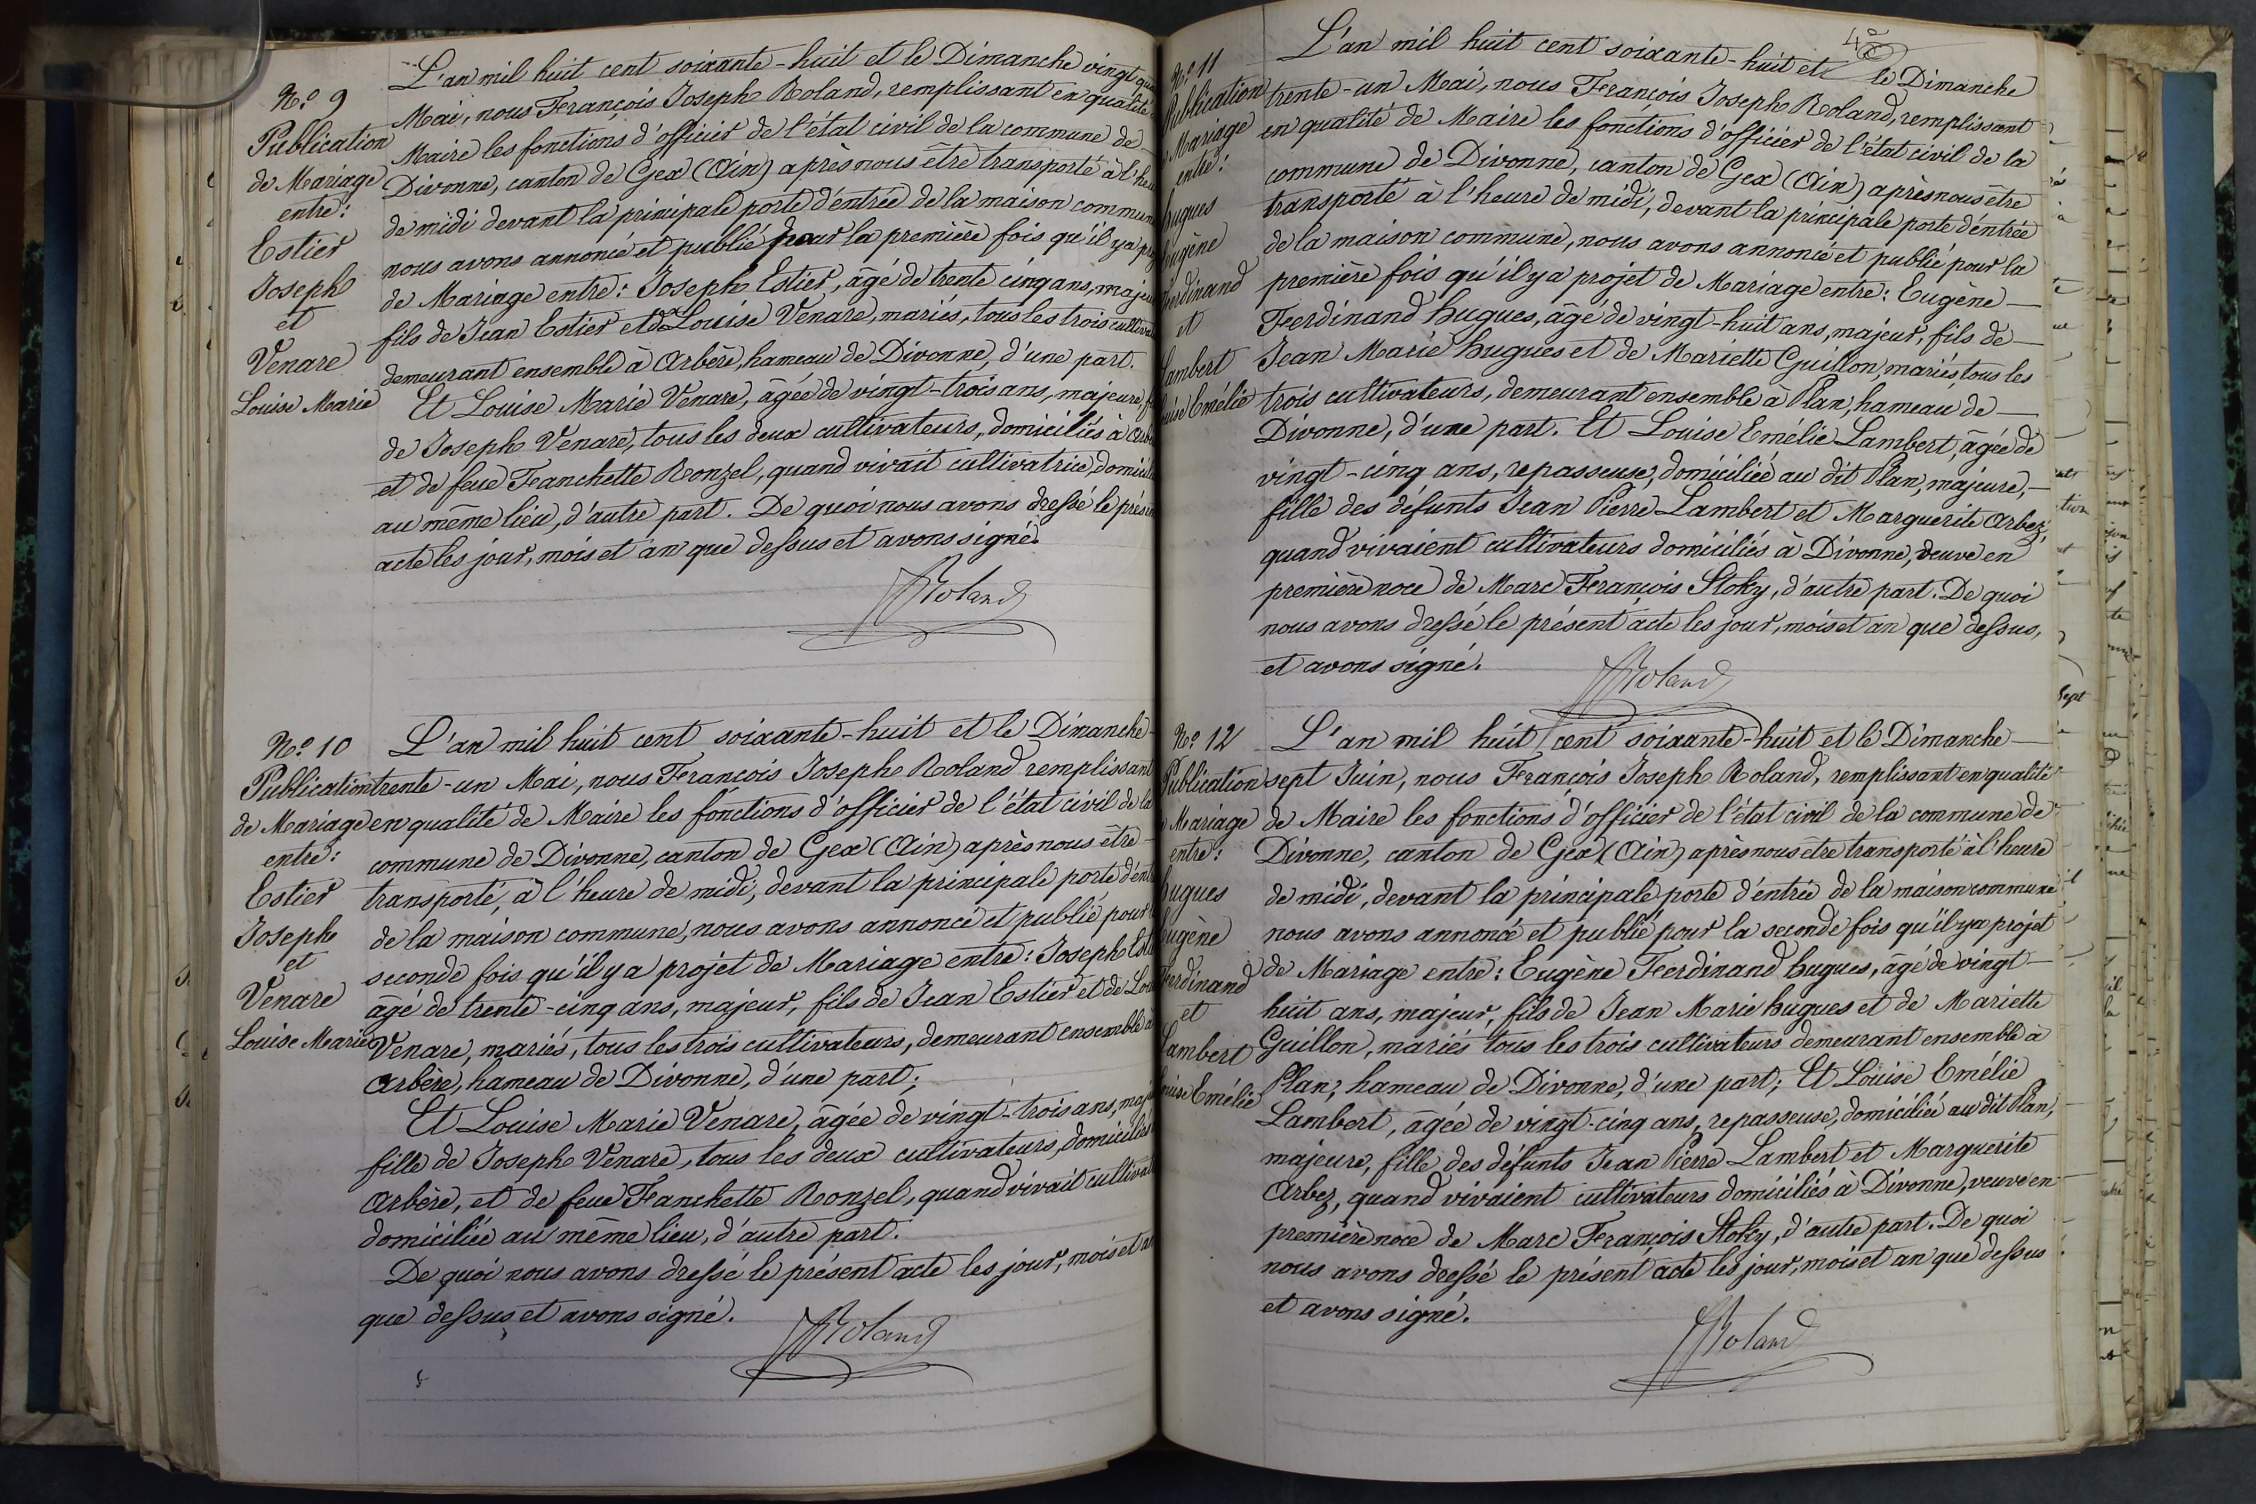 N.º 9
Publication
de Mariage
entre:
Estier
Joseph
et
Venare
Louise Marie
L'an mil huit cent soixante-huit et le Dimanche vingt
Mai, nous François Joseph Roland, remplissant en qualité
Maire les fonctions d'officier de l'état civil de la commune de
Divonne, canton de Gex (Ain) après nous être transporté à l'heu
de midi devant la principale porte d'entrée de la maison commun
nous avons annoncé et publié pour la première fois qu'il y a
de Mariage entre: Joseph Estier, âgé de trente cinq ans, majeu
fils de Jean Estier et de Louise Venare, mariés, tous les trois cultiva
demeurant ensemble à Arbère, hameau de Divonne, d'une part.
Et Louise Marie Venare, âgée de vingt-trois ans, majeure,
de Joseph Venare, tous les deux cultivateurs, domiciliés à Arb
et de feue Franchette Ronzel, quand vivait cultivatrice, domicil
au même lieu, d'autre part. De quoi nous avons dressé le prése
acte les jour, mois et an que dessus et avons signé.
Roland
N.º 10
Publication
de Mariage
entre:
Estier
Joseph
et
Venare
Louise Marie
L'an mil huit cent soixante-huit et le Dimanche
trente-un Mai, nous François Joseph Roland remplissant
en qualité de Maire les fonctions d'officier de l'état civil de la
commune de Divonne, canton de Gex (Ain) après nous être
transporté, à l'heure de midi, devant la principale porte d'ent
de la maison commune, nous avons annoncé et publié pour
seconde fois qu'il y a projet de Mariage entre: Joseph Est
âgé de trente-cinq ans, majeur, fils de Jean Estier et de Lou
Venare, mariés, tous les trois cultivateurs, demeurant ensemble à
Arbère, hameau de Divonne, d'une part;
Et Louise Marie Venare, âgée de vingt-trois ans, maj
fille de Joseph Venare, tous les deux cultivateurs, domiciliés
Arbère, et de feue Franchette Ronzel, quand vivait cultivat
domiciliée au même lieu, d'autre part.
De quoi nous avons dressé le présent acte les jour, mois et an
que dessus et avons signé.
Roland
42
N.º 11
Publication
Mariage
entre:
hugues
Eugène
Ferdinand
et
Lambert
Louise Emélie
L'an mil huit cent soixante-huit et le Dimanche
trente-un Mai, nous François Joseph Roland, remplissant
en qualité de Maire les fonctions d'officier de l'état civil de la
commune de Divonne, canton de Gex (Ain) après nous être
transporté à l'heure de midi, devant la principale porte d'entrée
de la maison commune, nous avons annoncé et publié pour la
première fois qu'il y a projet de Mariage entre: Eugène
Ferdinand hugues, âgé de vingt-huit ans, majeur, fils de
Jean Marie hugues et de Mariette Guillon, mariés, tous les
trois cultivateurs, demeurant ensemble à Plan, hameau de
Divonne, d'une part. Et Louise Emélie Lambert, âgée de
vingt-cinq ans, repasseuse, domiciliée au dit Plan, majeure,
fille des défunts Jean Pierre Lambert et Marguerite Arbez,
quand vivaient cultivateurs domiciliés à Divonne, veuve en
première noce de Marc François Stoky, d'autre part. De quoi
nous avons dressé le présent acte les jour, mois et an que dessus,
et avons signé.
Roland
N.º 12
Publication
Mariage
entre:
hugues
Eugène
Ferdinand
et
Lambert
Louise Emélie
L'an mil huit cent soixante-huit et le Dimanche
sept Juin, nous François Joseph Roland, remplissant en qualité
de Maire les fonctions d'officier de l'état civil de la commune de
Divonne, canton de Gex (Ain) après nous être transporté à l'heure
de midi, devant la principale porte d'entrée de la maison commune
nous avons annoncé et publié pour la seconde fois qu'il y a projet
de Mariage entre: Eugène Ferdinand hugues, âgé de vingt-
huit ans, majeur, fils de Jean Marie hugues et de Mariette
Guillon, mariés tous les trois cultivateurs demeurant ensemble à
Plan, hameau de Divonne, d'une part; Et Louise Emélie
Lambert, âgée de vingt-cinq ans, repasseuse, domiciliée au dit Plan,
majeure, fille des défunts Jean Pierre Lambert et Marguerite
Arbez, quand vivaient cultivateurs domiciliés à Divonne, veuve en
première noce de Marc François Stoky, d'autre part. De quoi
nous avons dressé le présent acte les jour, mois et an que dessus
et avons signé.
Roland